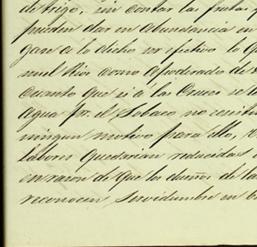 de trigo, sin contar las frutas
pueden dar en abundancia en
gan a lo dicho en efectivo lo
mil Rios como Apoderado de
Cuanto que si á las Cruces se le
Agua pr. el Sobaco no resulta
ningun motivo para ello,
labores quedarian reducidas
en razon de que los dueños de la
reconocen Servidumbre en